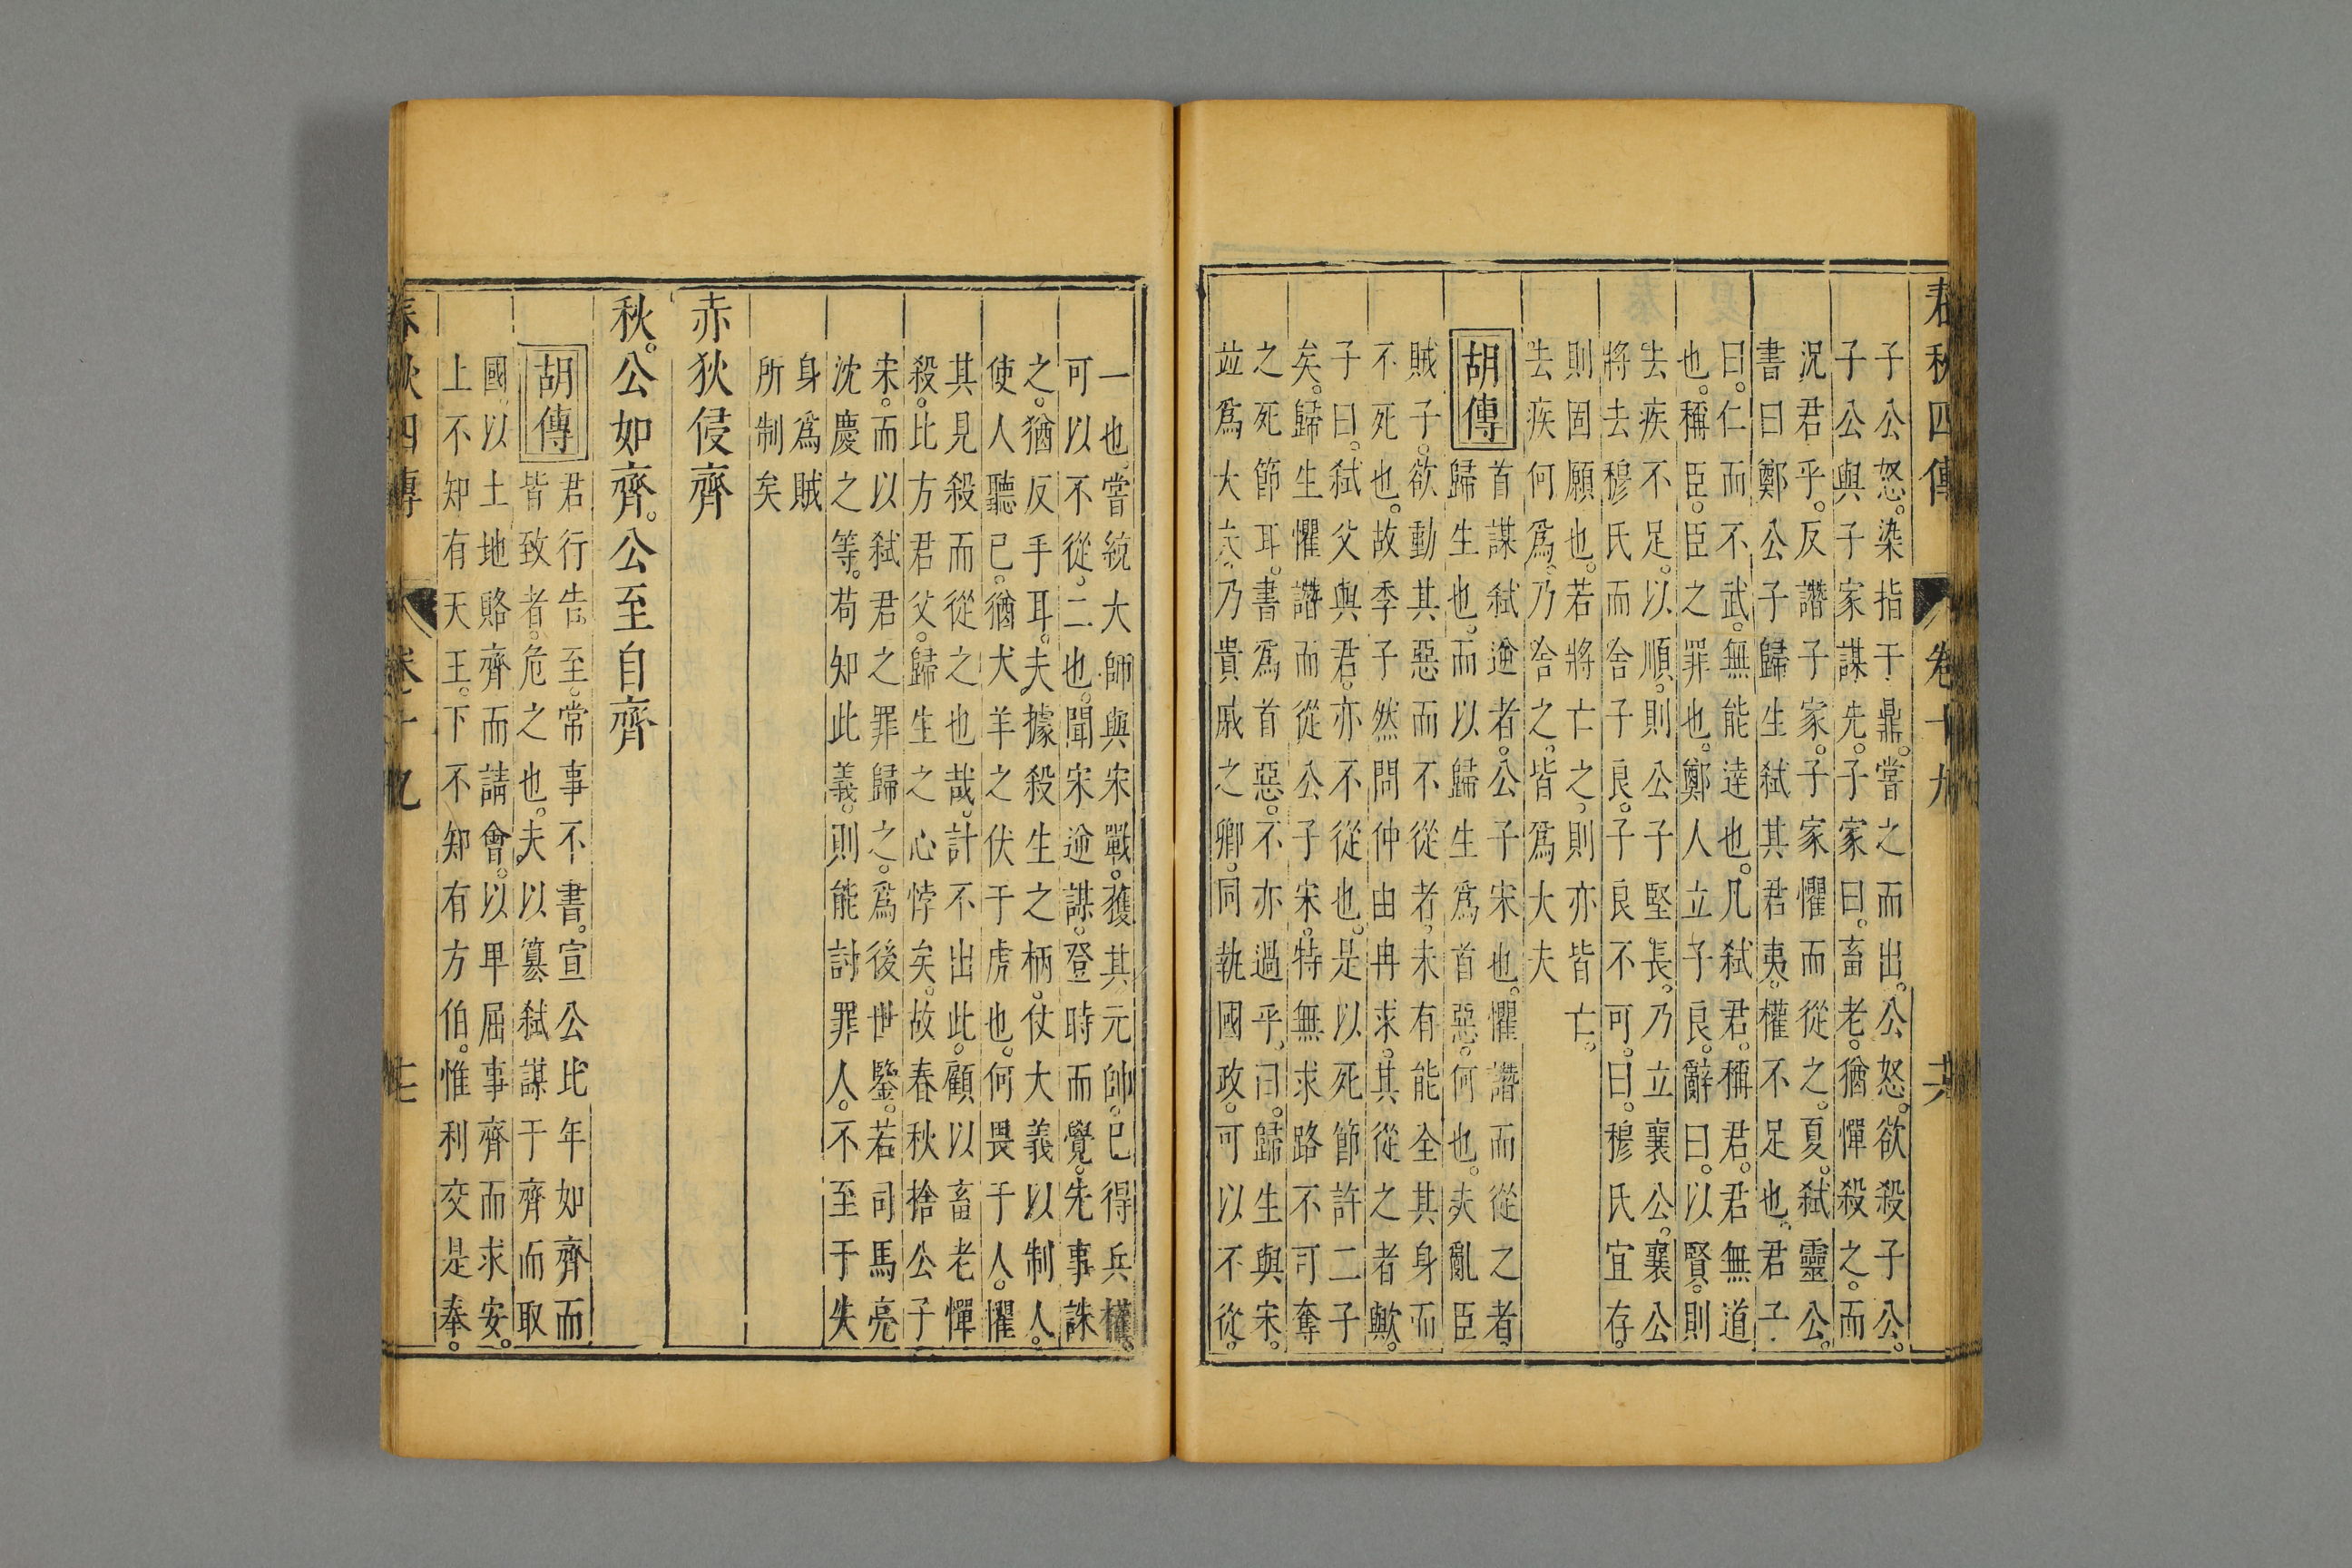 春秋四傳 卷十九 六
子公怒。染指于鼎。嘗之而出。公怒。欲殺子公。
子公與子家謀先。子家曰。畜老。猶憚殺之。而
況君乎。反譖子家。子家懼而從之。夏。弒靈公。
書曰鄭公子歸生弒其君夷。權不足也。君子
曰。仁而不武。無能達也。凡弒君。稱君。君無道
也。稱臣。臣之罪也。鄭人立子良。辭曰。以賢。則
去疾不足。以順。則公子堅長。乃立襄公。襄公
將去穆氏而舍子良。子良不可。曰。穆氏宜存。
則固願也。若將亡之。則亦皆亡。
去疾何爲。乃舍之。皆爲大夫
胡傳
首謀弒逆者。公子宋也。懼譖而從之者。
歸生也。而以歸生爲首惡。何也。夫亂臣
賊子。欲動其惡而不從者。未有能全其身而
不死也。故季子然問仲由冉求。其從之者歟。
子曰。弒父與君。亦不從也。是以死節許二子
矣。歸生懼譖而從公子宋。特無求路不可奪
之死節耳。書爲首惡。不亦過乎。曰。歸生與宋。
並爲大夫。乃貴戚之卿。同執國政。可以不從。
一也。嘗統大師與宋戰。獲其元帥。已得兵權。
可以不從。二也。聞宋逆謀。登時而覺。先事誅
之。猶反手耳。夫據殺生之柄。仗大義以制人。
使人聽已。猶犬羊之伏于虎也。何畏于人。懼
其見殺而從之也哉。計不出此。顧以畜老憚
殺。比方君父。歸生之心悖矣。故春秋捨公子
宋。而以弒君之罪歸之。爲後世鑒。若司馬亮
沈慶之等。苟知此義。則能討罪人。不至于失
身爲賊
所制矣
赤狄侵齊
秋。公如齊。公至自齊
胡傳
君行告至。常事不書。宣公比年如齊而
皆致者。危之也。夫以簒弒謀于齊而取
國。以土地賂齊而請會。以卑屈事齊而求安。
上不知有天王。下不知有方伯。惟利交是奉。
春秋四傳 卷十九